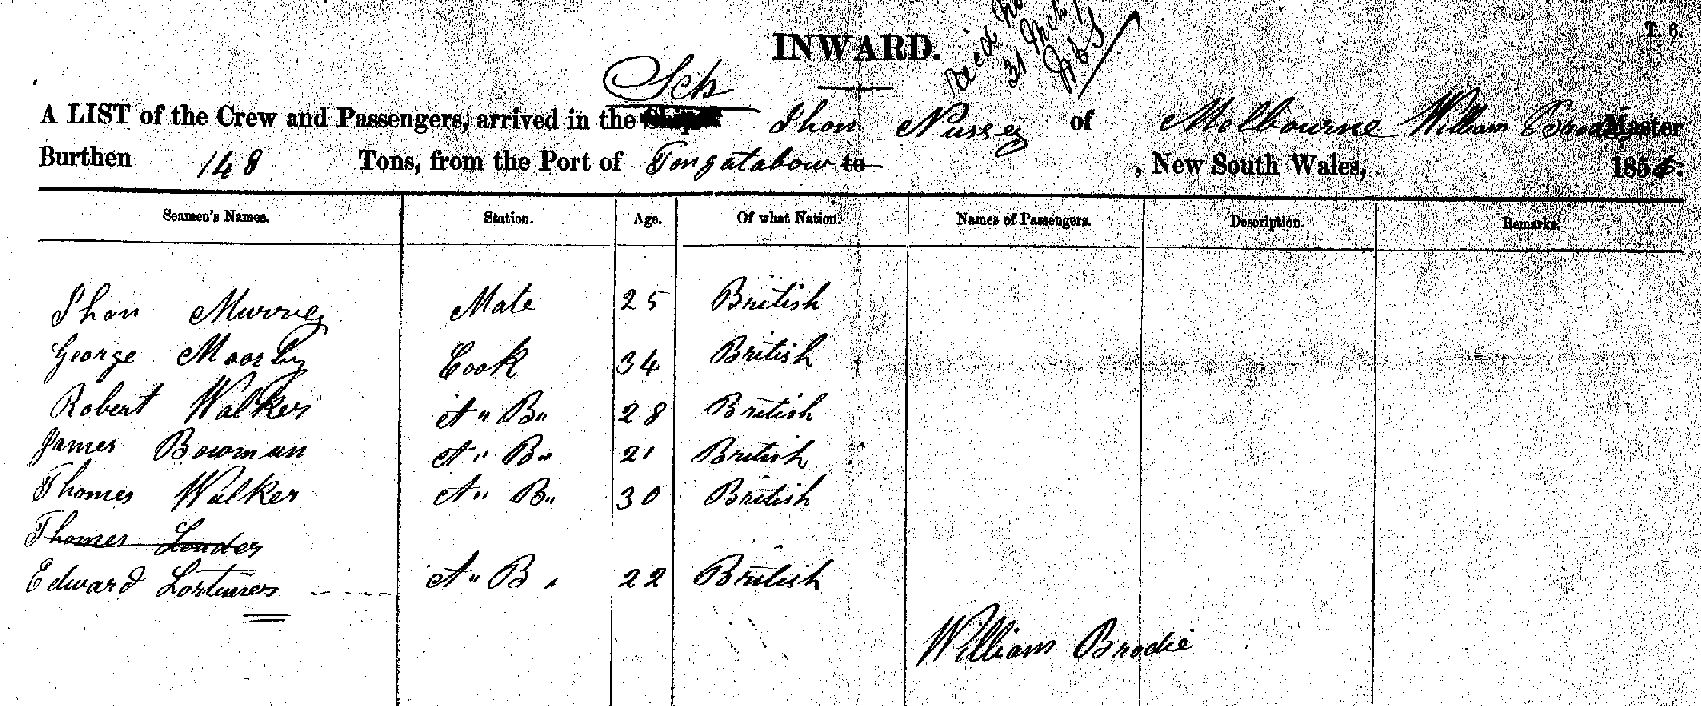 T. 6.
INWARD.
31
Sch
A LIST of the Crew and Passengers, arrived in the Ship Jhon Nussey of Melbourne William Brodie Master
Burthen 148 Tons, from the Port of Tongatabow to , New South Wales, 185
Seamen's Names. Station. Age. Of what Nation. Names of Passengers. Description. Remarks.
Jhon Murrey Mate 25 British
George Moorby Cook 34 British
Robert Walker A" B" 28 British
James Bowman A" B" 21 British
Thomas Walker A" B" 30 British
Thomas Louder
Edward A" B" 22 British
William Brodie